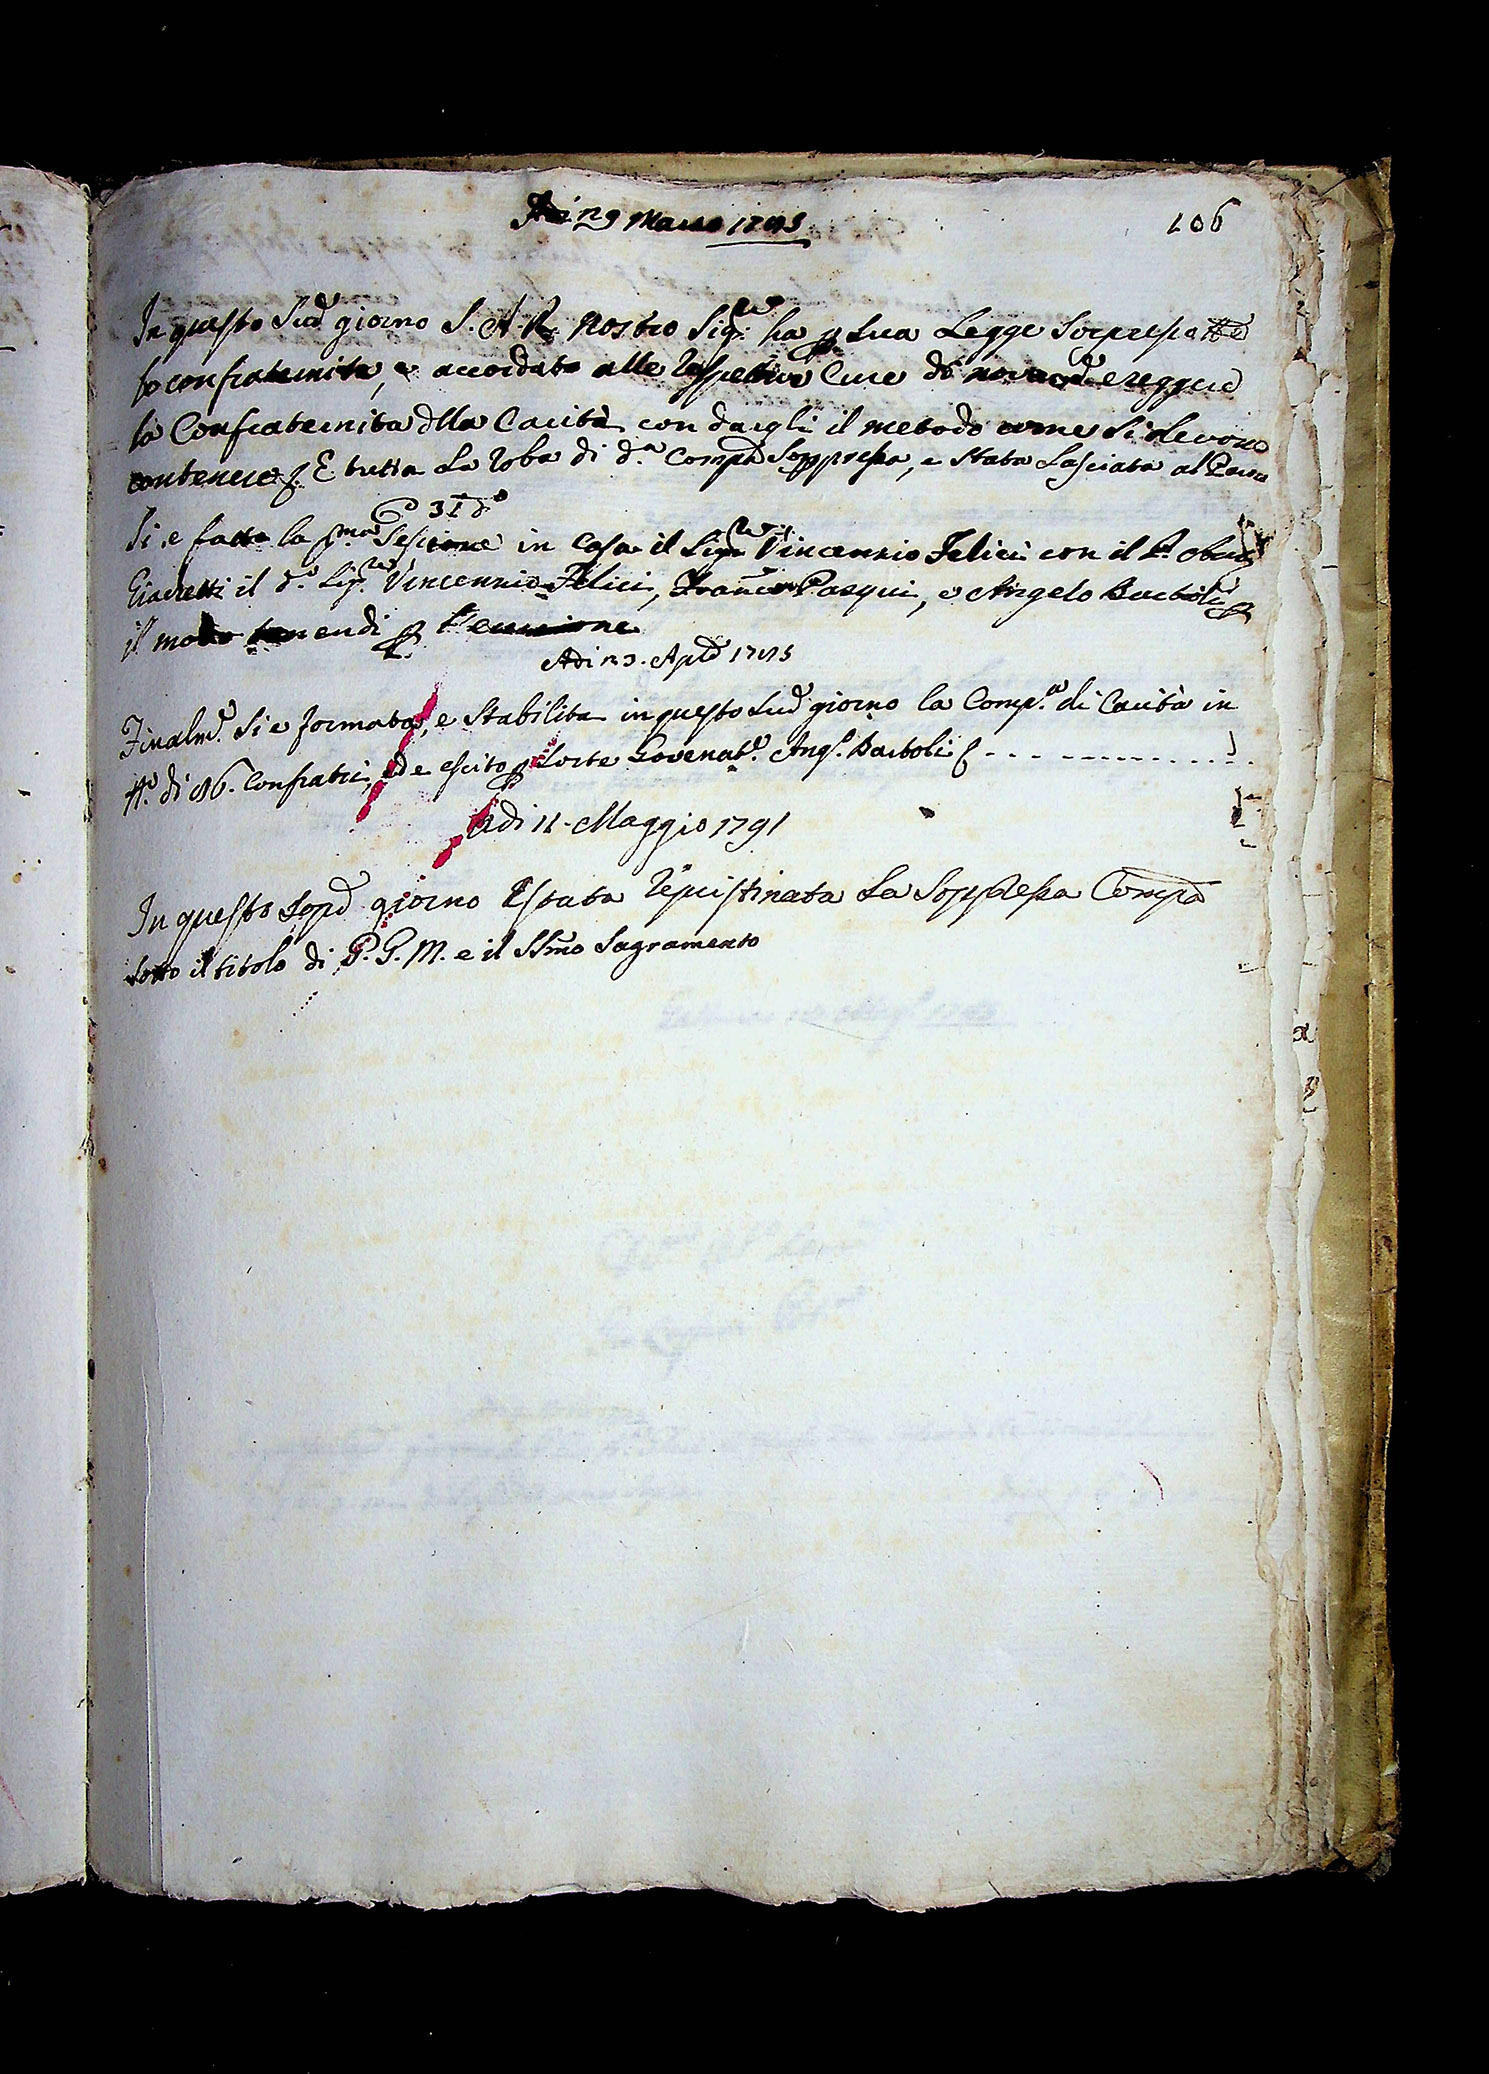 Adi 29 Marzo 1785
106
In questo Sud.º giorno S. A. R. Nostro Sig.re ha p Sua Legge Soppresa tte
le confraternita, e accordato alle respettive Cure di novam.e ereggere
la Confraternita dlla Carità con dargli il metodo come si devono
contenere E tutta La roba di d.ª Comp.ª Soppressa, e Stata Lasciata al
31 d.º
Si e fatta la p.ma Sessione in Casa il Sig.re Vincenzio Felici con il
il d.º Sig.re Vincenzio Felici, Franc.º Pasqui, e Angelo Bartoli p
il modo tenendi p l'
Adi 23. Aple 1785
Finalm.e Si e formata, e Stabilita in questo Sud.º giorno la Comp.ª di Carità in
N.º di 86. Confratri, ed e escito p Sorte Govenat.e Ang.º Bartoli
Adi 11. Maggio 1791
In questo Sopd.º giorno è stata repristinata La Soppressa Comp.ª
sotto il titolo di P. G. M. e il SSmo Sagramento